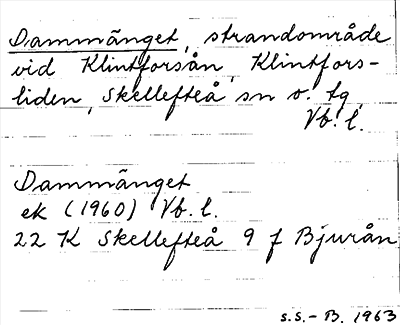 Dammänget, strandområde
vid Klintforsån, Klintfors-
liden, Skellefteå sn o. tg,
Vb. l.
Dammänget
ek (1960) Vb. l.
22 K Skellefteå 9 f Bjurån
S.S.-B. 1963